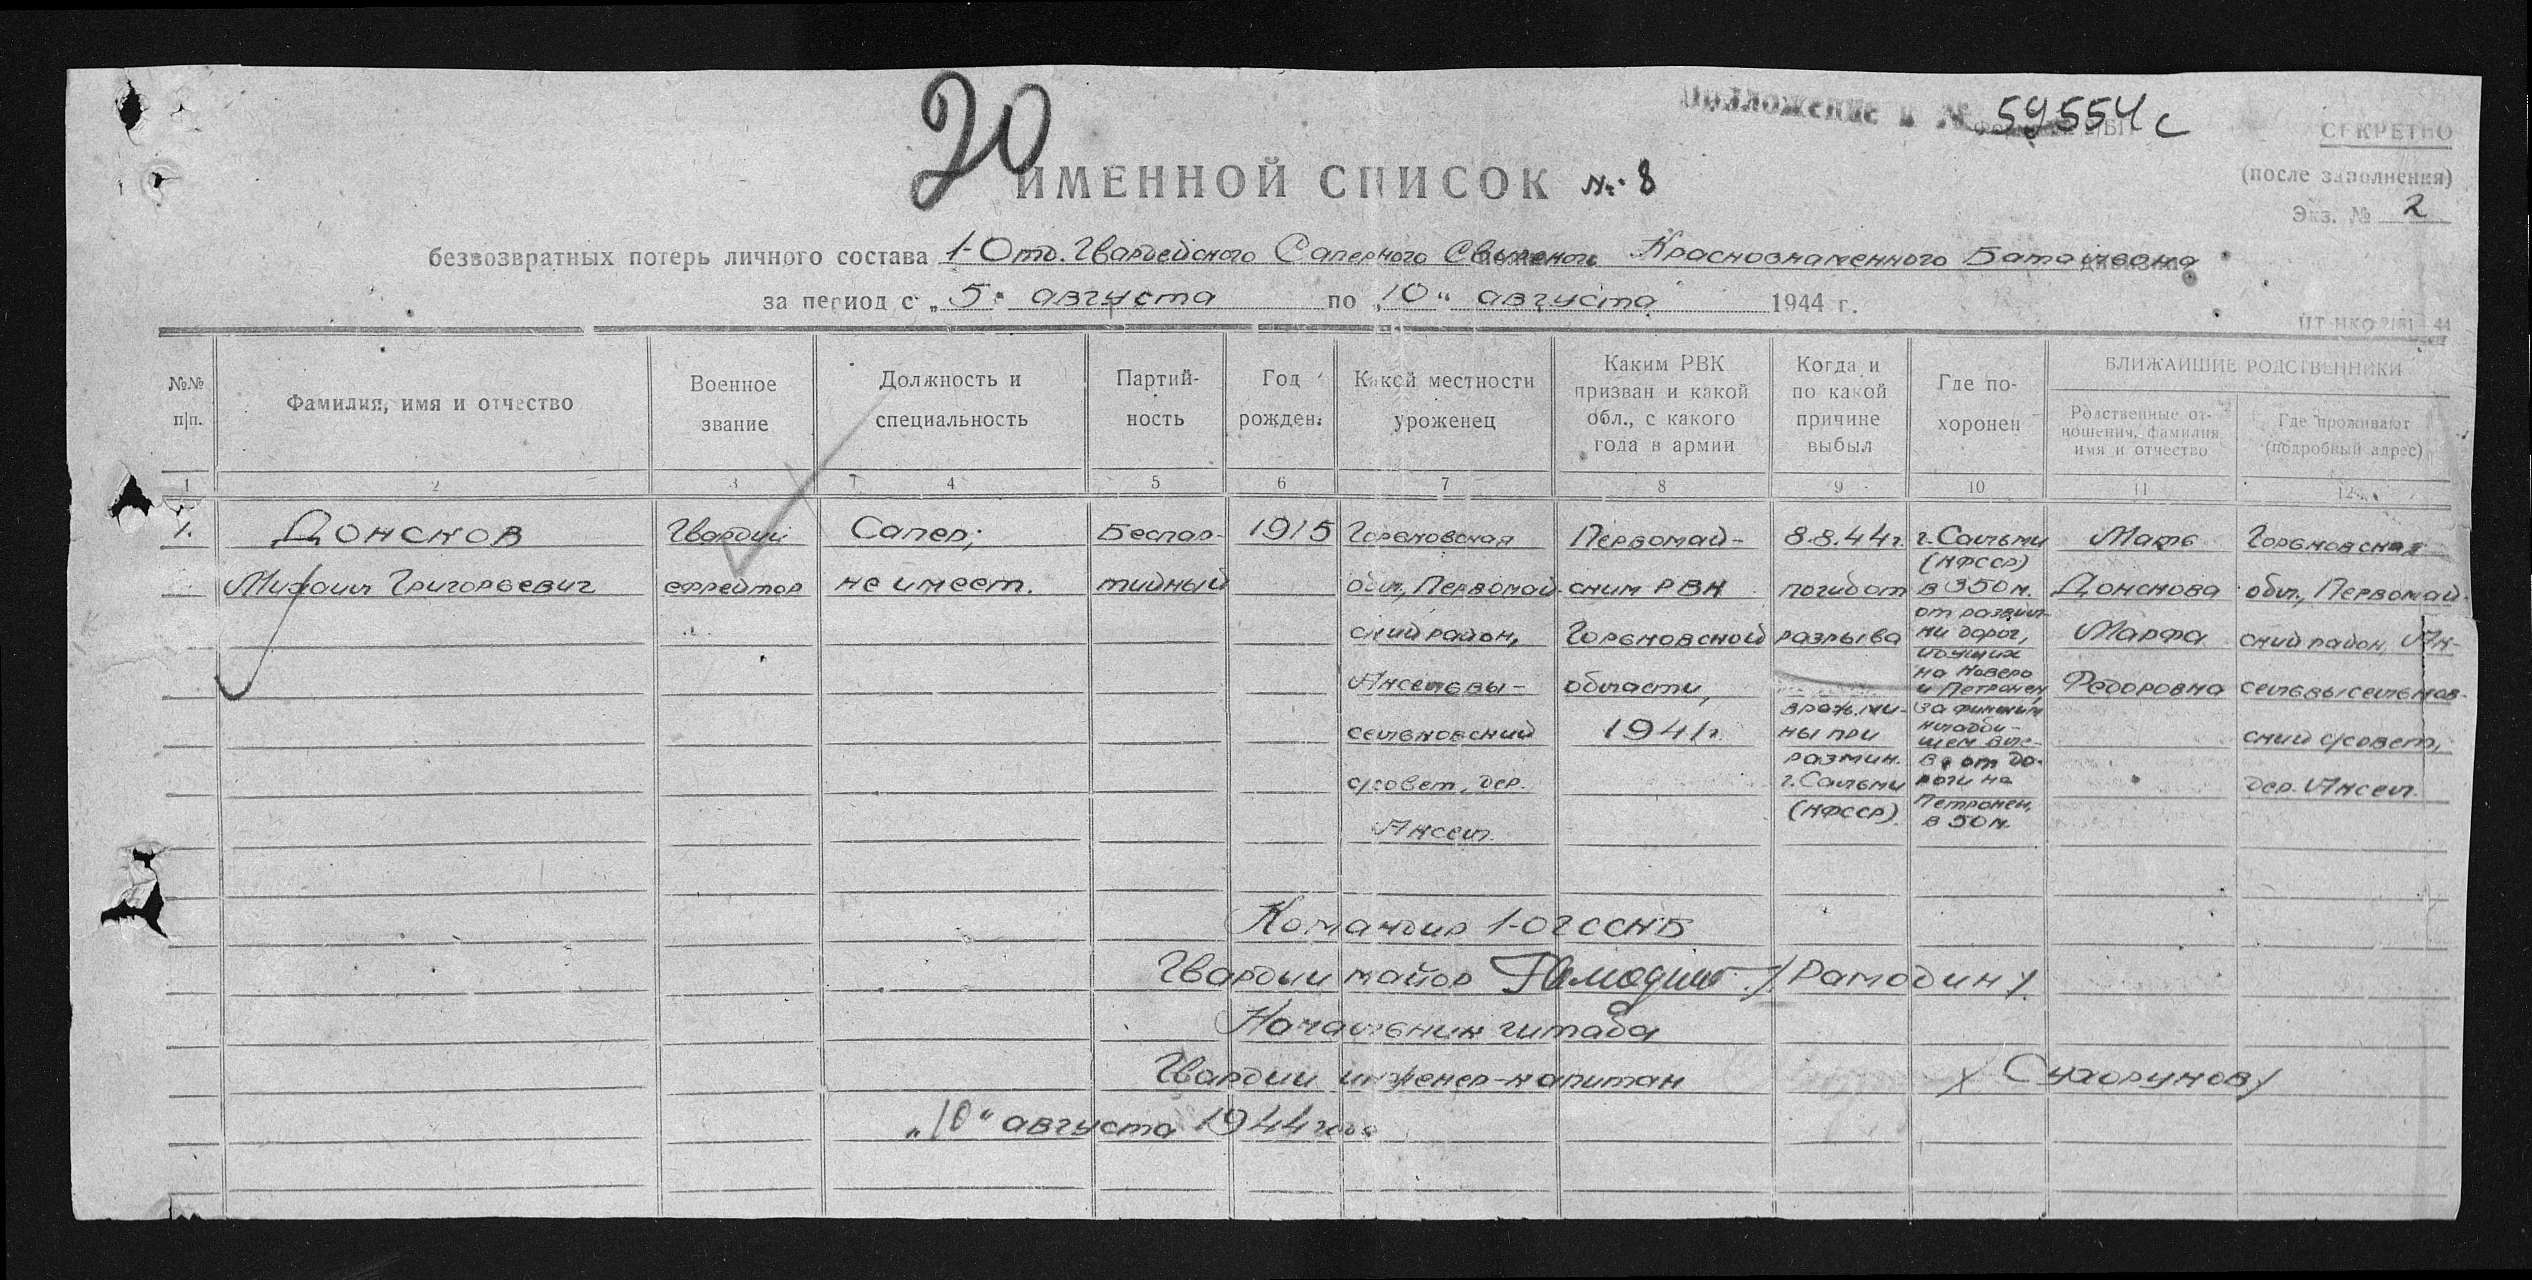 20
Приложение к № 59554с
СЕКРЕТНО
(после заполнения)
Экз. № 2
ИМЕННОЙ СПИСОК №8
безвозвратных потерь личного состава 1-Отд. Гвардейского Саперного Свирского Краснознаменного Баталиона
за период с „5“ августа по „10“ августа 1944 г.
№№ п/п.
Фамилия, имя и отчество
Военное звание
Должность и специальность
Партий-ность
Год рожден.
Какой местности уроженец
Каким РВК призван и какой обл., с какого года в армии
Когда и по какой причине выбыл
Где по-хоронен
БЛИЖАЙШИЕ РОДСТВЕННИКИ
Родственные от-ношения, фамилия имя и отчество
Где проживают (подробный адрес)
1 2 3 4 5 6 7 8 9 10 11 12
1.
Донсков
Михаил Григорьевич
Гвардии
ефрейтор
Сапер;
не имеет.
Беспар-
тийный
1915
Горьковская
обл., Первомай-
ский район,
Аксельвы-
сельковский
с/совет, дер.
Аксел.
Первомай-
ским РВК
Горьковской
области,
1941г.
8.8.44г.
погиб от
разрыва
враж. ми-
ны при
размин.
г. Сальми
(КФССР)
г. Сальми
(КФССР)
в 350 м.
от развил-
ки дорог,
идущих
на Ковера
и Петронен,
за финским
кладби-
щем вле-
во от до-
роги на
Петронен,
в 50 м.
Мать
Донскова
Марфа
Федоровна
Горьковская
обл., Первомай-
ский район, Ак-
сельвысельков-
ский с/совет,
дер. Аксел.
Командир 1-ОГССКБ
Гвардии майор Рамодин /Рамодин/.
Начальник штаба
Гвардии инженер-капитан /Сухоруков/
„10“ августа 1944 года